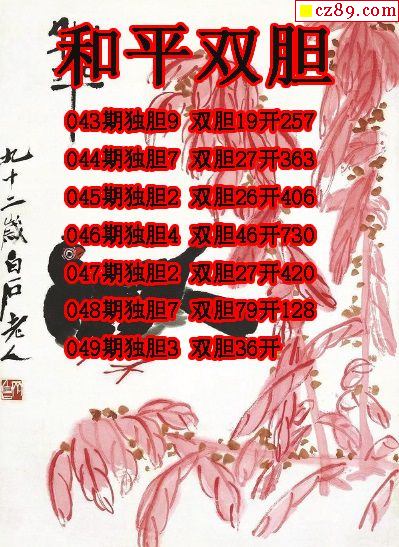 cz89.com
和平双胆
043期独胆9 双胆19开257
044期独胆7 双胆27开363
045期独胆2 双胆26开406
046期独胆4 双胆46开730
047期独胆2 双胆27开420
048期独胆7 双胆79开128
049期独胆3 双胆36开
九十二岁白石老人